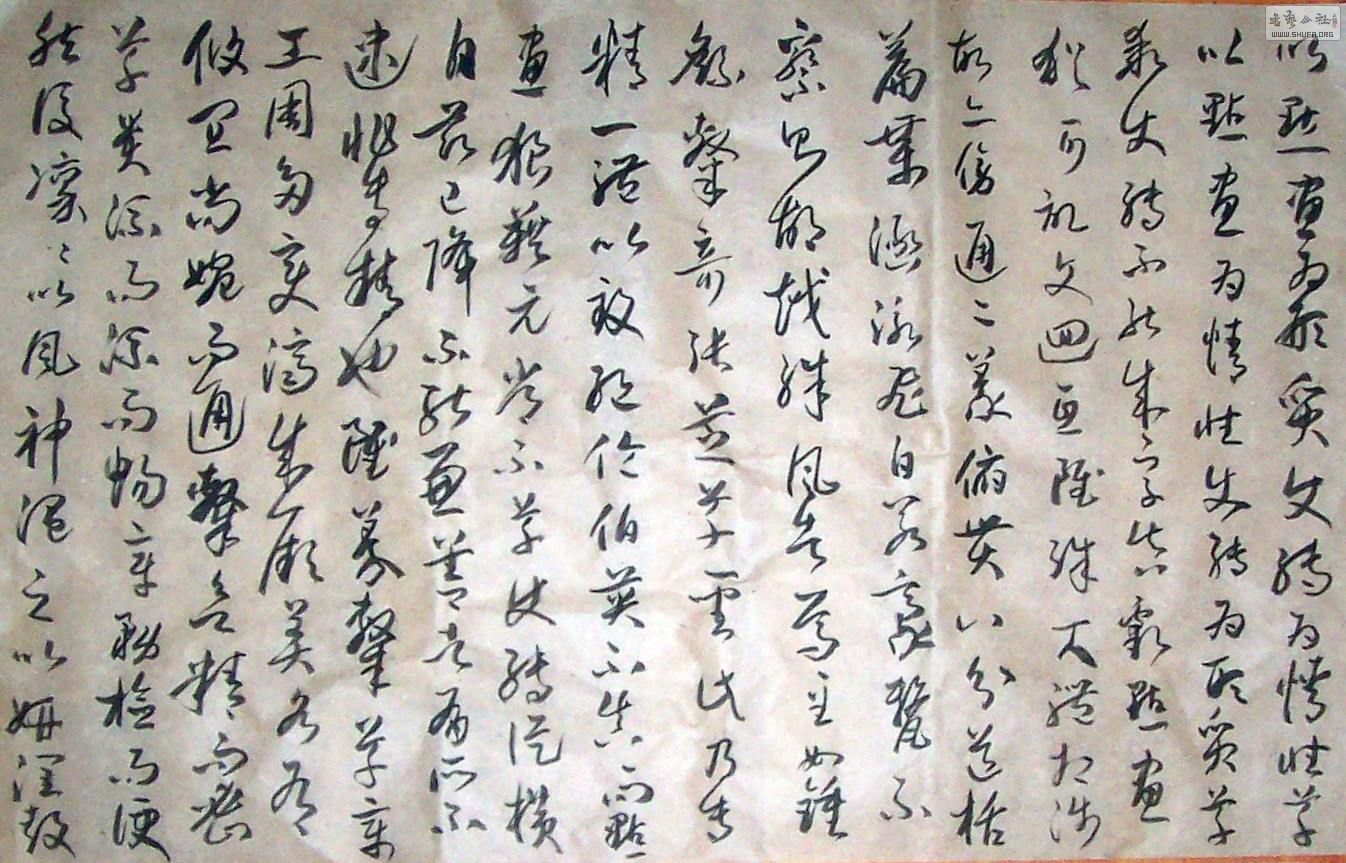 以點畫為形質使轉為情性草
以點畫為情性使轉為形質草
乖使轉不能成字真虧點畫
猶可記文迴互雖殊大體相涉
故亦傍通二篆俯貫八分苞括
篇章涵泳飛白若豪釐不
察則胡越殊風者焉至如鍾
繇隸奇張芝草聖此乃專
精一體以致絕倫伯英不真而點
畫狼藉元常不草使轉縱橫
自茲已降不能兼善者有所不
逮非專精也雖篆隸草章
工用多變濟成厥美各有
攸宜尚婉而通隸欲精而密
草貴流而暢章務檢而便
然後凜之以風神溫之以妍潤鼓
书艺公社
WWW.SHUFA.ORG